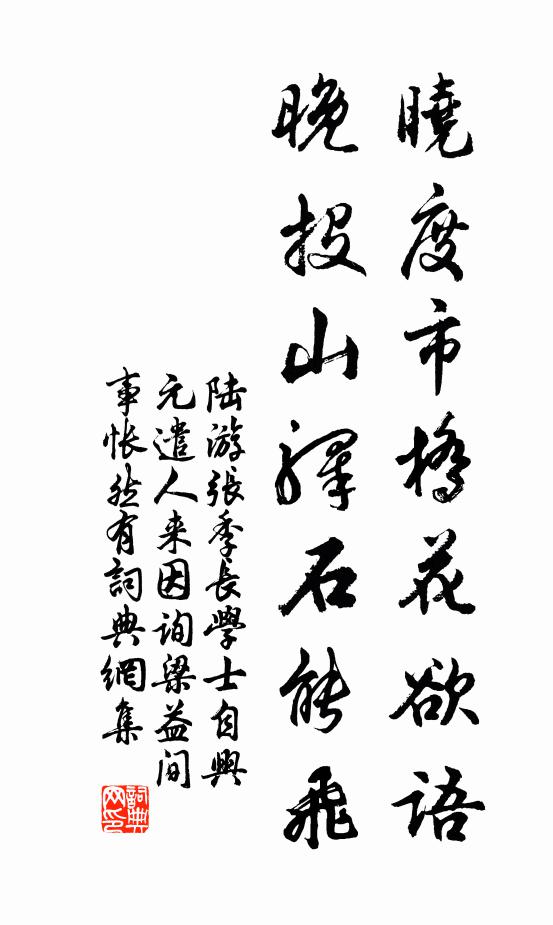 曉度市橋花欲語
晚投山驛石能飛
陆游張季長學士自興
元遣人来因詢梁益间
事怅然有詞典網集
詞典网印